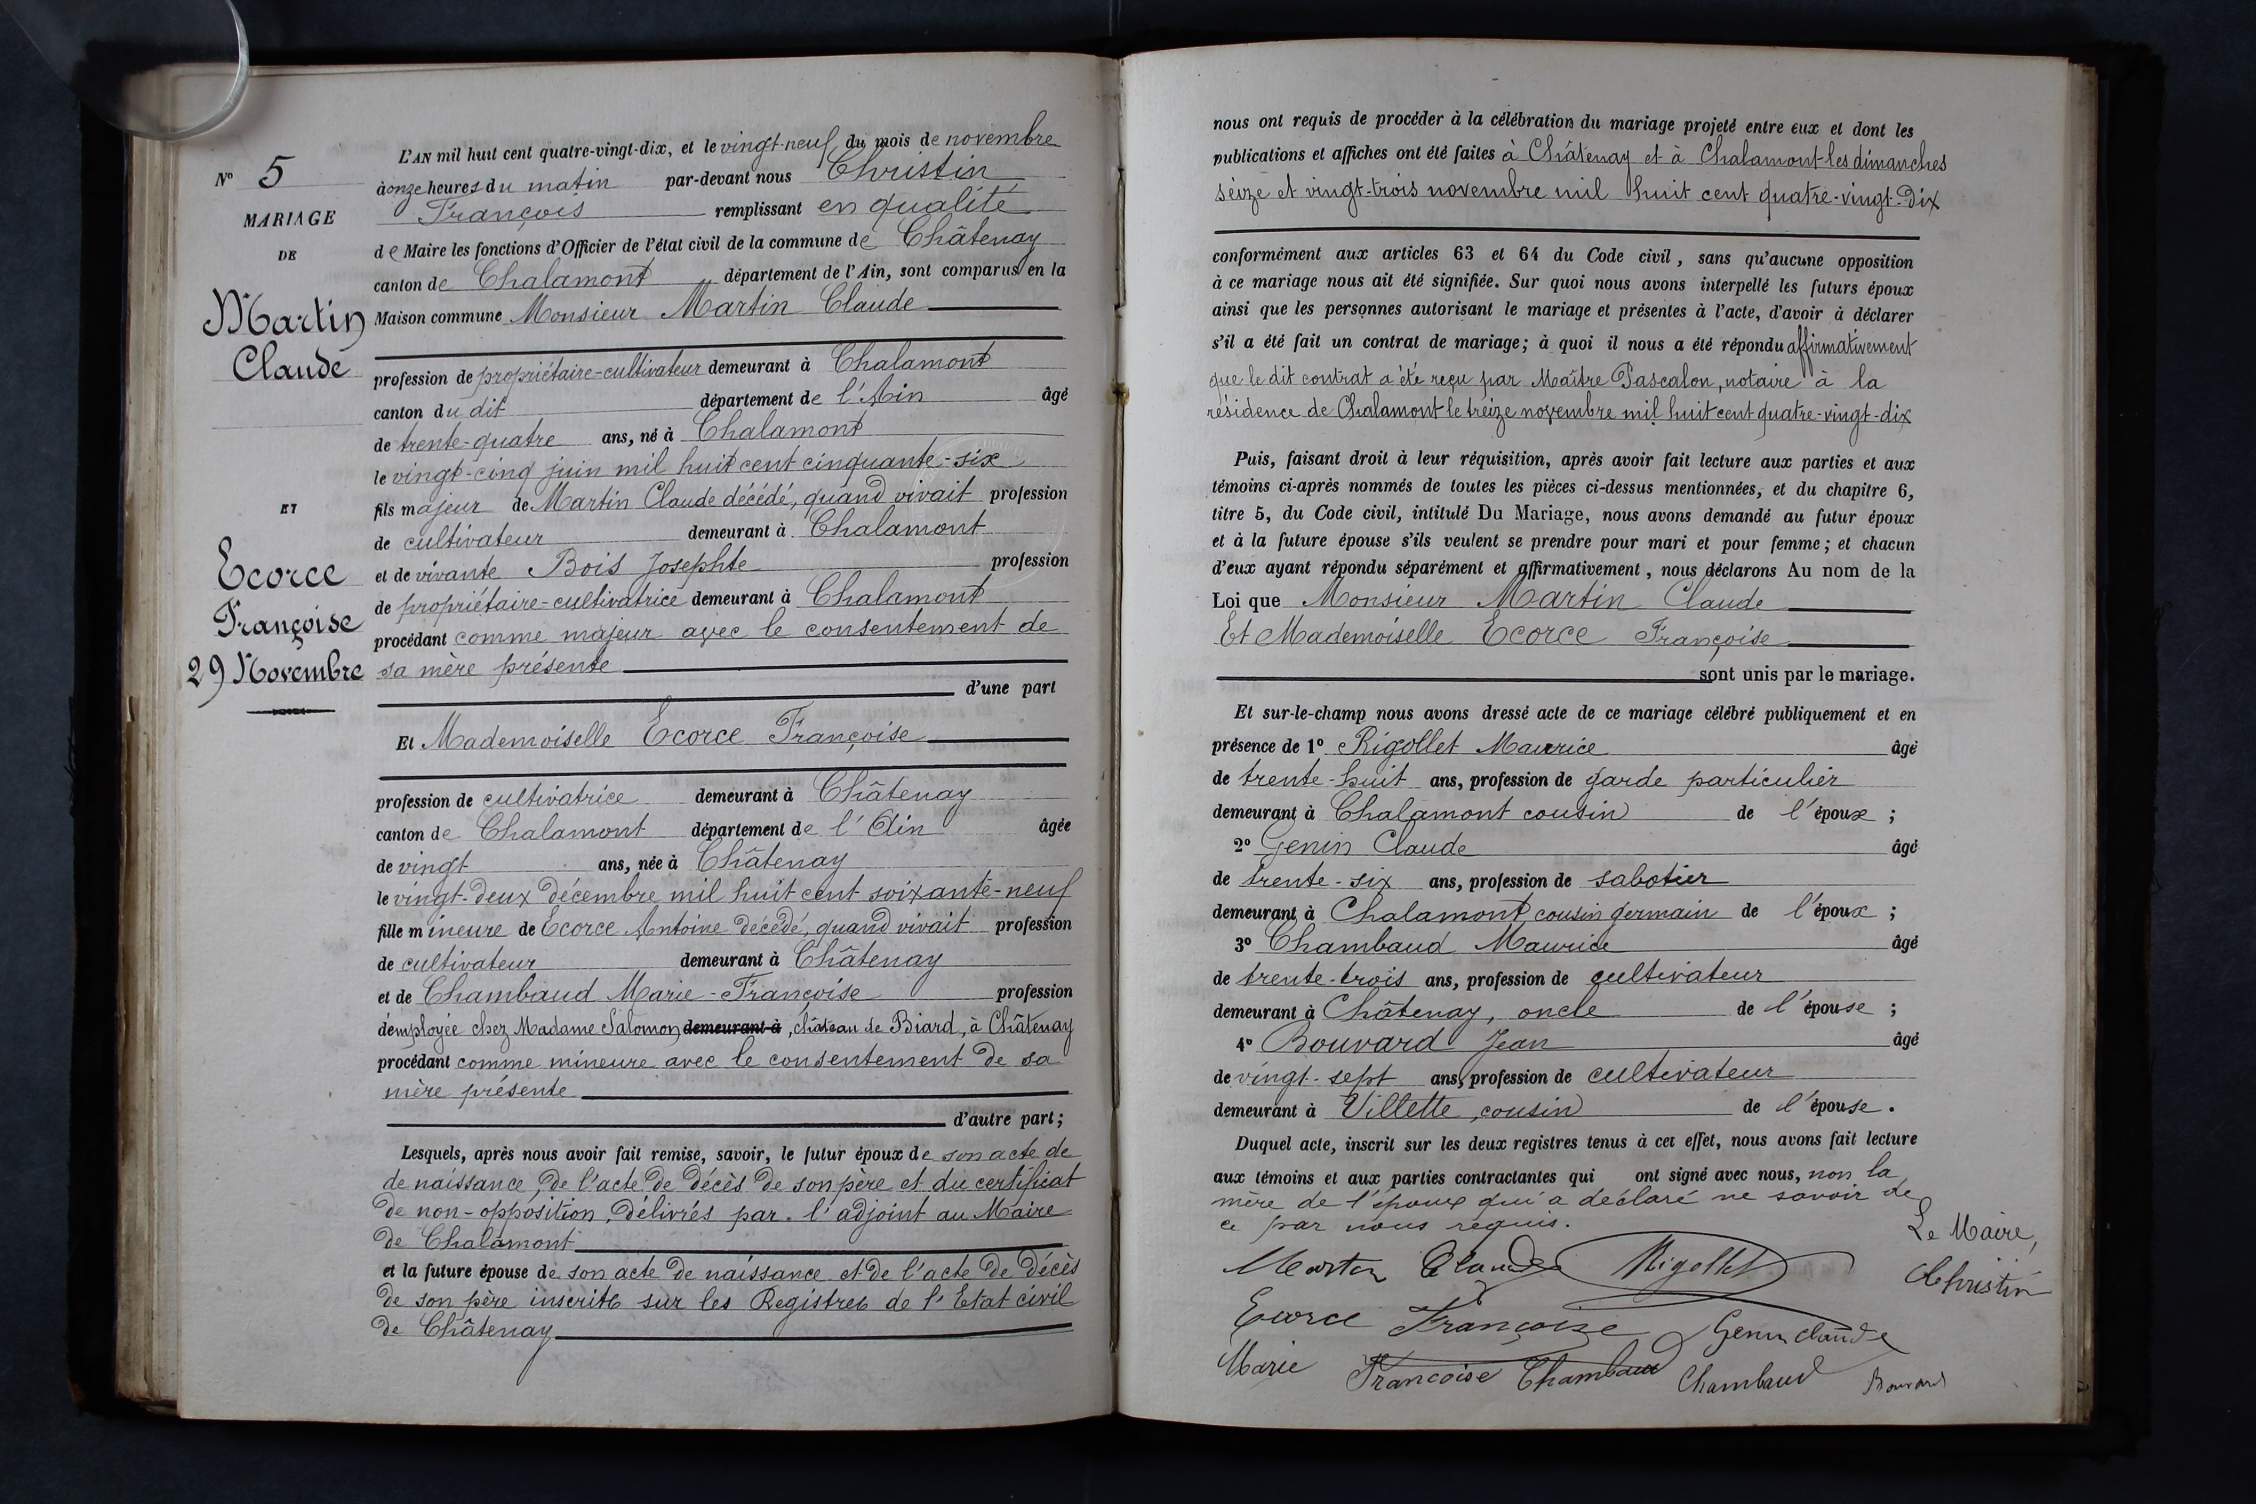 N° 5
MARIAGE
DE
Martin
Claude
ET
Ecorce
Françoise
29 Novembre
L'AN mil huit cent quatre-vingt-dix, et le vingt-neuf du mois de novembre
à onze heures du matin par-devant nous Christin
François remplissant en qualité
de Maire les fonctions d'Officier de l'état civil de la commune de Châtenay
canton de Chalamont département de l'Ain, sont comparus en la
Maison commune Monsieur Martin Claude
profession de propriétaire-cultivateur demeurant à Chalamont
canton du dit département de l'Ain âgé
de trente-quatre ans, né à Chalamont
le vingt-cinq juin mil huit cent cinquante-six
fils majeur de Martin Claude décédé, quand vivait profession
de cultivateur demeurant à Chalamont
et de vivante Bois Josephte profession
de propriétaire-cultivatrice demeurant à Chalamont
procédant comme majeur avec le consentement de
sa mère présente
d'une part
Et Mademoiselle Ecorce Françoise
profession de cultivatrice demeurant à Châtenay
canton de Chalamont département de l'Ain âgée
de vingt ans, née à Châtenay
le vingt-deux décembre mil huit cent soixante-neuf
fille mineure de Ecorce Antoine décédé, quand vivait profession
de cultivateur demeurant à Châtenay
et de Chambaud Marie-Françoise profession
d'employée chez Madame Salomon demeurant à, château de Biard, à Châtenay
procédant comme mineure avec le consentement de sa
mère présente
d'autre part;
Lesquels, après nous avoir fait remise, savoir, le futur époux de son acte de
de naissance, de l'acte de décès de son père et du certificat
de non-opposition, délivrés par l'adjoint au Maire
de Chalamont
et la future épouse de son acte de naissance et de l'acte de décès
de son père inscrits sur les Registres de l'Etat civil
de Châtenay
nous ont requis de procéder à la célébration du mariage projeté entre eux et dont les
publications et affiches ont été faites à Châtenay et à Chalamont les dimanches
seize et vingt-trois novembre mil huit cent quatre-vingt-Dix
conformément aux articles 63 et 64 du Code civil, sans qu'aucune opposition
à ce mariage nous ait été signifiée. Sur quoi nous avons interpellé les futurs époux
ainsi que les personnes autorisant le mariage et présentes à l'acte, d'avoir à déclarer
s'il a été fait un contrat de mariage; à quoi il nous a été répondu affirmativement
que le dit contrat a été reçu par Maître Pascalon, notaire à la
résidence de Chalamont le treize novembre mil huit cent quatre-vingt-dix
Puis, faisant droit à leur réquisition, après avoir fait lecture aux parties et aux
témoins ci-après nommés de toutes les pièces ci-dessus mentionnées, et du chapitre 6,
titre 5, du Code civil, intitulé Du Mariage, nous avons demandé au futur époux
et à la future épouse s'ils veulent se prendre pour mari et pour femme; et chacun
d'eux ayant répondu séparément et affirmativement, nous déclarons Au nom de la
Loi que Monsieur Martin Claude
Et Mademoiselle Ecorce Françoise
sont unis par le mariage.
Et sur-le-champ nous avons dressé acte de ce mariage célébré publiquement et en
présence de 1° Rigollet Maurice âgé
de trente-huit ans, profession de garde particulier
demeurant à Chalamont cousin de l'époux;
2° Genin Claude âgé
de trente-six ans, profession de sabotier
demeurant à Chalamont, cousin germain de l'époux;
3° Chambaud Maurice âgé
de trente-trois ans, profession de cultivateur
demeurant à Châtenay, oncle de l'épouse;
4° Bouvard Jean âgé
de vingt-sept ans, profession de cultivateur
demeurant à Villette, cousin de l'épouse.
Duquel acte, inscrit sur les deux registres tenus à cet effet, nous avons fait lecture
aux témoins et aux parties contractantes qui ont signé avec nous, non la
mère de l'époux qui a déclaré ne savoir de
ce par nous requis.
Le Maire,
Martin Claude Rigollet Christin
Ecorce Françoise Genin Claude
Marie Françoise Chambaud Chambaud Bouvard